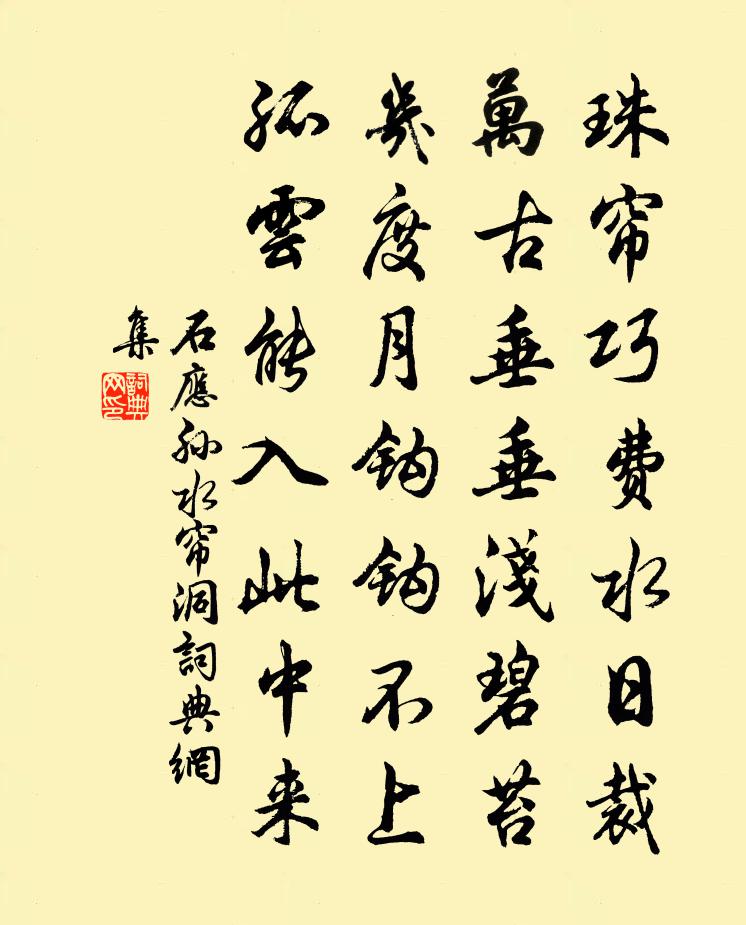 珠帘巧费水日裁
萬古垂垂淺碧苔
幾度月钩钩不上
孤雲能入此中来
石應孙水帘洞詞典網
集
詞典
网印